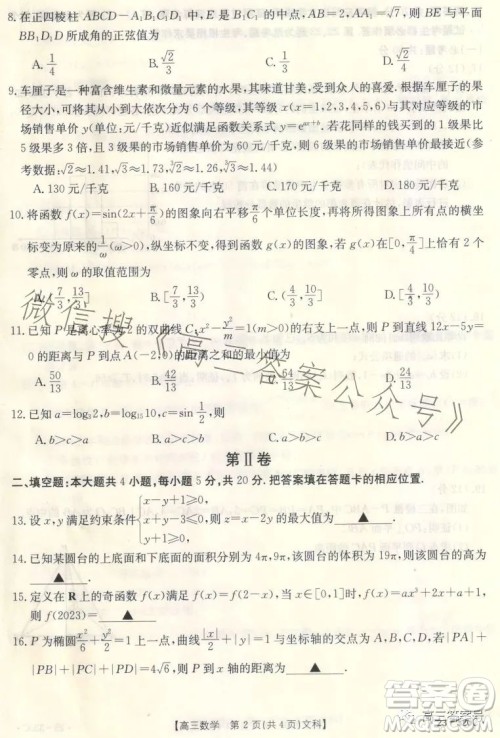 8. 在正四棱柱 ABCD-A₁B₁C₁D₁ 中,E 是 B₁C₁ 的中点,AB=2,AA₁=√7,则 BE 与平面
BB₁D₁D 所成角的正弦值为
A. 1/4 B. √2/4 C. 1/3 D. √2/3
9. 车厘子是一种富含维生素和微量元素的水果,其味道甘美,受到众人的喜爱.根据车厘子的果
径大小,可将其从小到大依次分为 6 个等级,其等级 x(x=1,2,3,4,5,6)与其对应等级的市
场销售单价 y(单位:元/千克)近似满足函数关系式 y=eᵃˣ⁺ᵇ.若花同样的钱买到的 1 级果比
5 级果多 3 倍,且 3 级果的市场销售单价为 60 元/千克,则 6 级果的市场销售单价最接近(参
考数据:√2≈1.41,√3≈1.73,∛2≈1.26,∛3≈1.44)
A. 130 元/千克 B. 160 元/千克 C. 170 元/千克 D. 180 元/千克
10. 将函数 f(x)=sin(2x+π/6)的图象向右平移 π/6 个单位长度,再将所得图象上所有点的横坐标
变为原来的 1/ω(ω>0),纵坐标不变,得到函数 g(x)的图象.若函数 g(x)在[0,π/4]上有且仅有 2 个
零点,则 ω 的取值范围为
A. [7/3,13/3) B. [7/3,13/3) C. (4/3,10/3] D. [4/3,10/3)
11. 已知 P 是离心率为 2 的双曲线 C:x²-y²/m=1(m>0)的右支上一点,则 P 到直线 12x-5y=
0 的距离与 P 到点 A(-2,0)的距离之和的最小值为
A. 50/13 B. 37/13 C. 64/13 D. 24/13
12. 已知 a=log₃2,b=log₁₅10,c=sin 1/2,则
A. b>c>a B. b>a>c C. a>b>c D. c>b>a
第Ⅱ卷
二、填空题:本大题共 4 小题,每小题 5 分,共 20 分.把答案填在答题卡的相应位置.
13. x,y 满足约束条件{x-y+1≥0, x+y-1≥0, 3x-y-3≤0, 则
14. 已知某圆台的上底面和下底面的面积分别为 4π,9π,该圆台的体积为 19π,则该圆台的高为
▲ .
15. 定义在 R 上的奇函数 f(x)满足 f(x)=f(2-x),当 x∈[0,1]时,f(x)=ax³+2x+a+1,
则 f(2023)= ▲ .
16. P 为椭圆 x²/6+y²/2=1 上一点,曲线 |x|/2+|y|=1 与坐标轴的交点为 A,B,C,D,若 |PA|+
|PB|+|PC|+|PD|=4√6,则 P 到 x 轴的距离为 ▲ .
【高三数学 第 2 页(共 4 页)文科】
微信搜《高三答案公众号》
答案圈